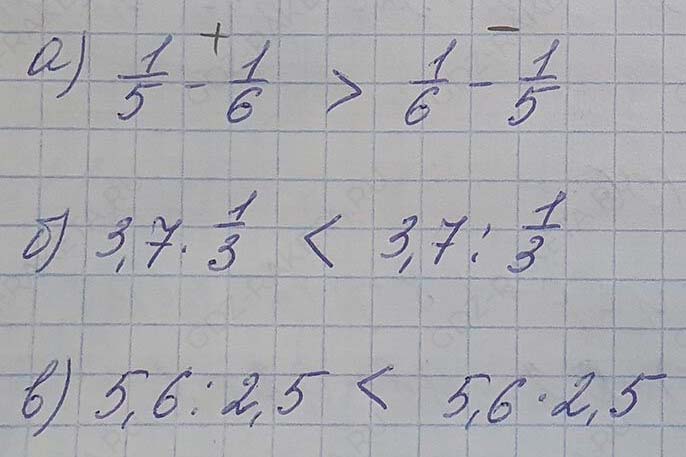 + −
а) 1/5 - 1/6 > 1/6 - 1/5
б) 3,7 · 1/3 < 3,7 : 1/3
в) 5,6 : 2,5 < 5,6 · 2,5